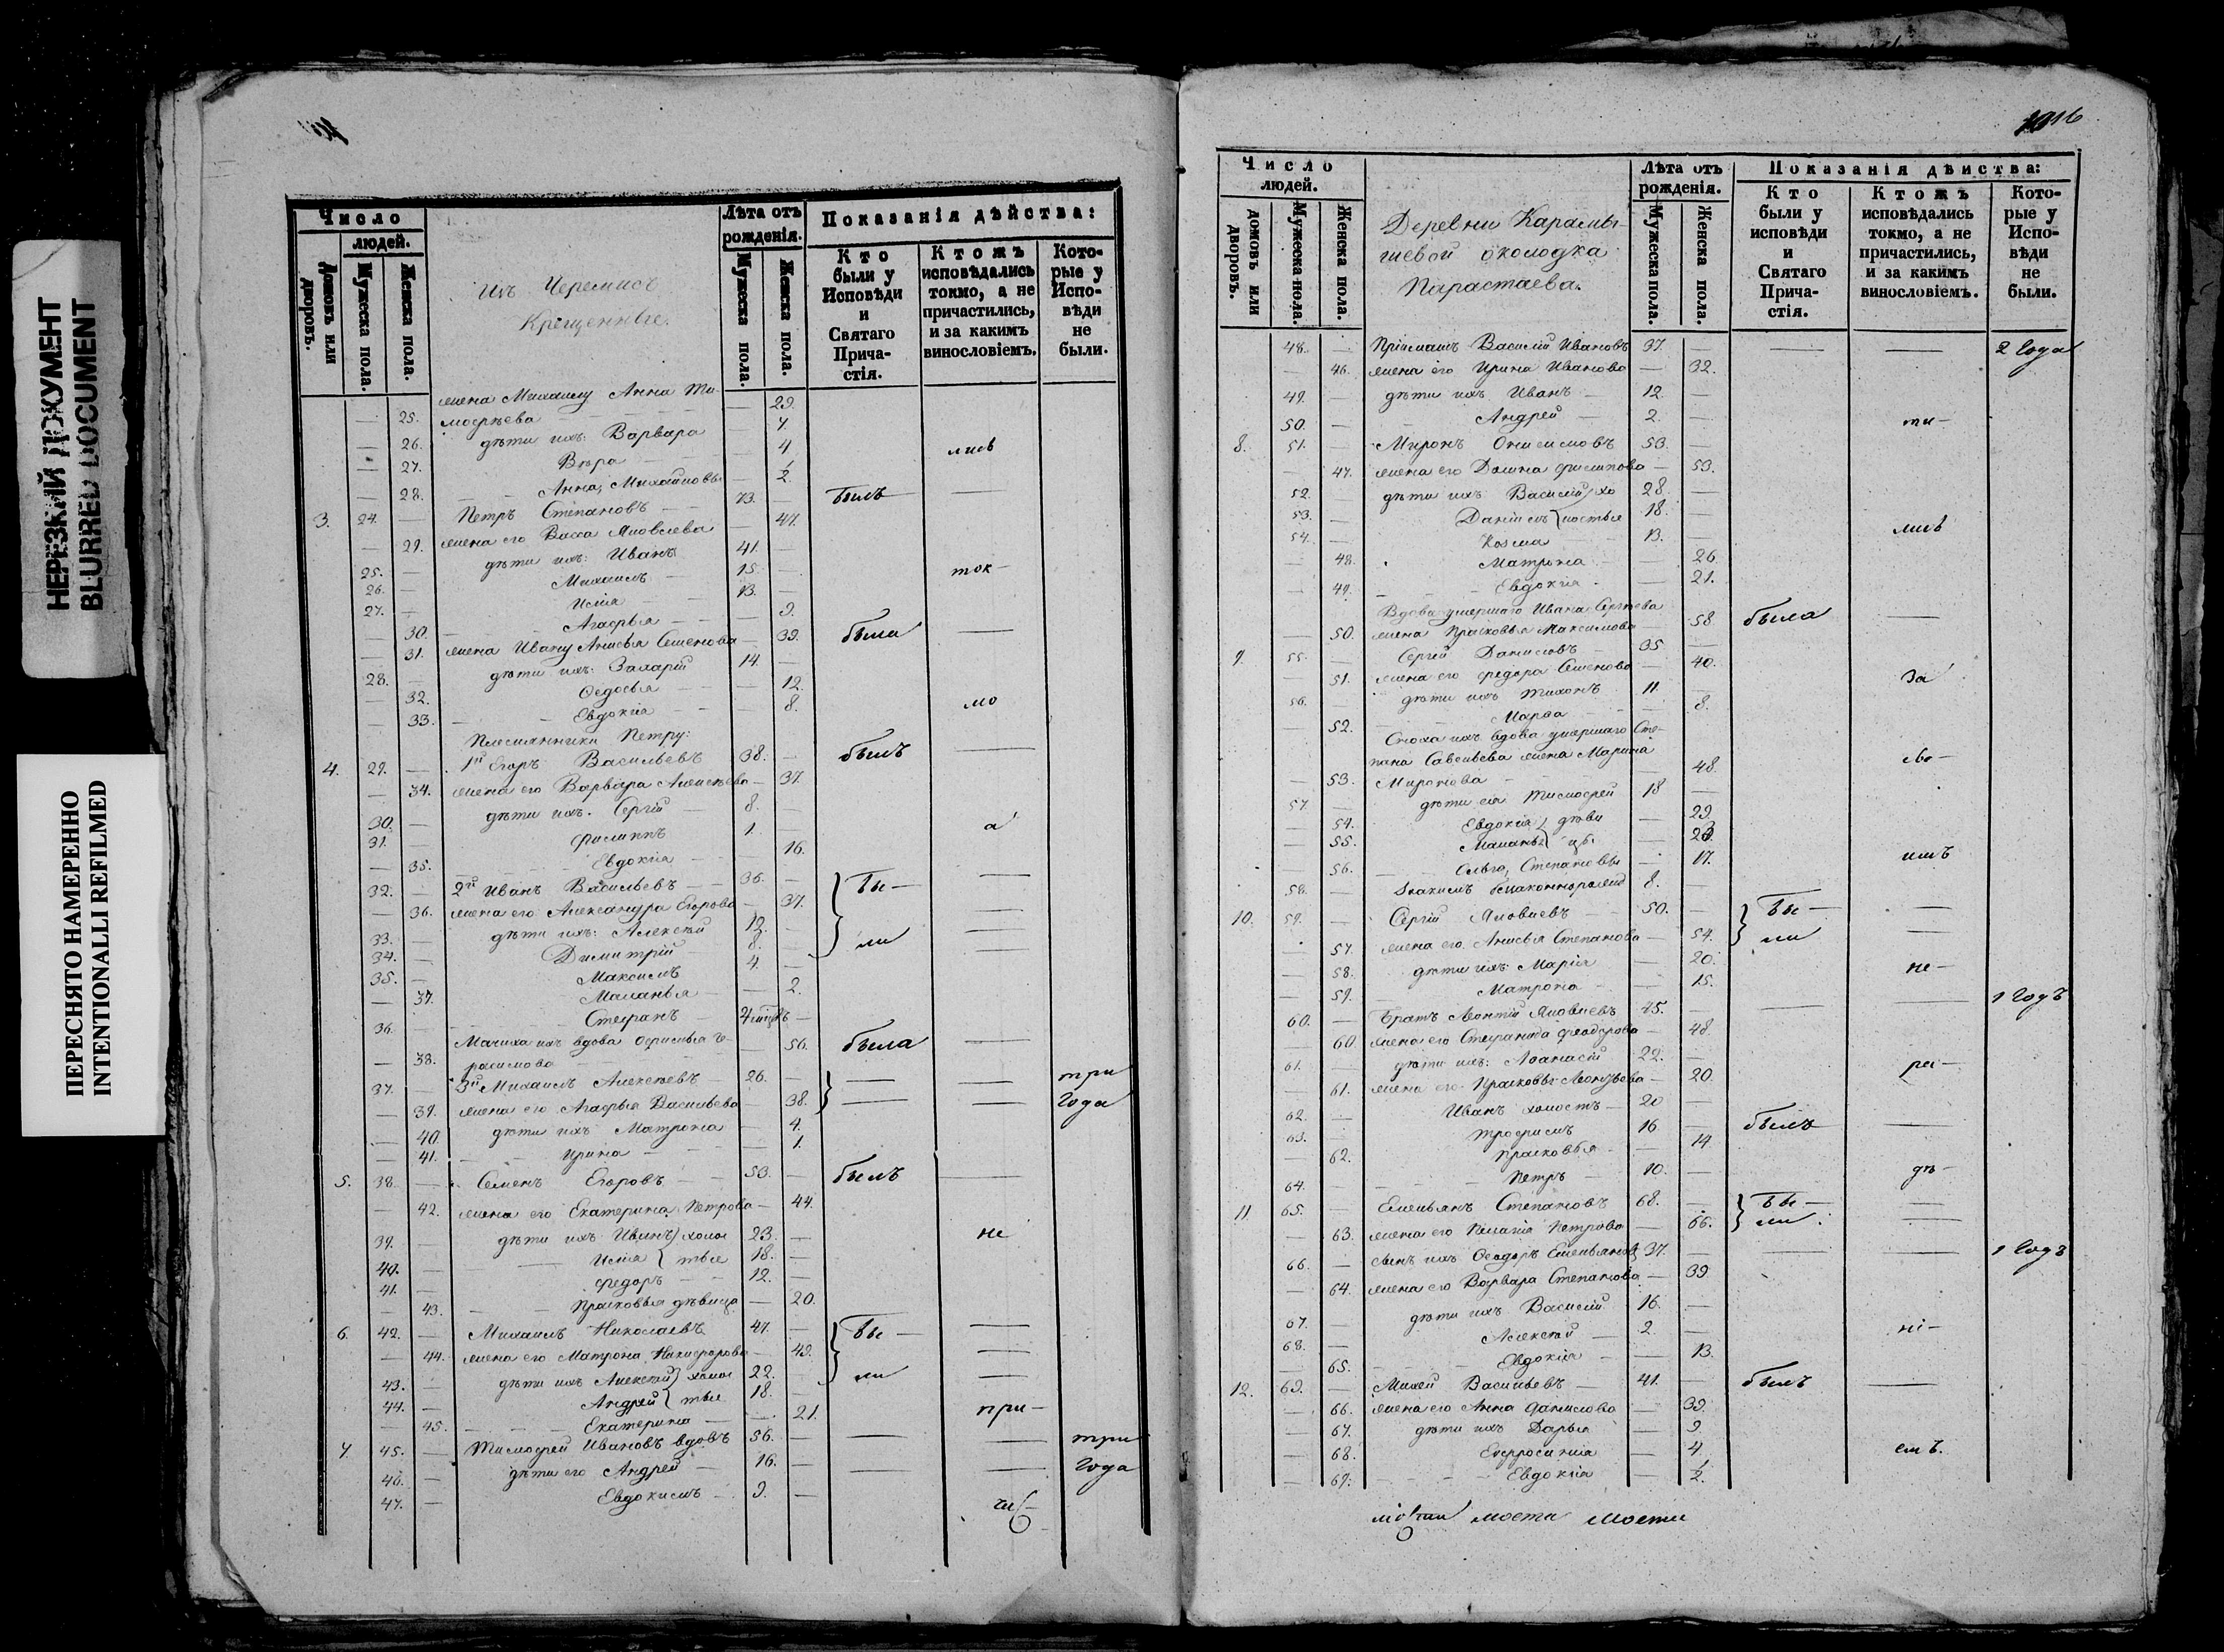 НЕРЕЗКИЙ ДОКУМЕНТ
BLURRED DOCUMENT
ПЕРЕСНЯТО НАМЕРЕННО
INTENTIONALLI REFILMED
Число
людей.
Домовъ или дворовъ.
Мужеска пола.
Женска пола.
Изъ Черемисъ
Крещенные.
Лѣта отъ рожденія.
Мужеска пола.
Женска пола.
Показанія дѣйства:
Кто были у Исповѣди и Святаго Причастія.
Ктожъ исповѣдались токмо, а не причастились, и за какимъ винословіемъ.
Которые у Исповѣди не были.
жена Михаилу Анна Ти-
— 25. мофѣева — 29.
— 26. дѣти ихъ: Варвара — 7.
— 27. Вѣра — 4 лись
— 28. Анна, Михайловы — 1/2.
3. 24. — Петръ Степановъ 73. — былъ —
— 29. жена его Васса Яковлева — 47.
25. — дѣти ихъ: Иванъ 41. —
26. — Михаилъ 15. — ток-
27. — Илія 13. —
— 30. Агафья — 9.
— 31. жена Ивану Анисья Семенова — 39. была —
28. — дѣти ихъ: Захарій 14. —
— 32. Ѳедосья — 12.
— 33. Евдокія — 8. мо
Племянники Петру:
4. 29. — 1й Егоръ Васильевъ 38. — былъ —
— 34. жена его Варвара Алексѣева — 37.
30. — дѣти ихъ: Сергій 8. —
31. — Филиппъ 1. — а
— 35. Евдокія — 16.
32. — 2й Иванъ Васильевъ 36. — бы- —
— 36. жена его Александра Егорова — 37. —
33. — дѣти ихъ: Алексѣй 12. — ли —
34. — Димитрій 8. — —
35. — Максимъ 4. —
— 37. Маланья — 2.
36. — Стефанъ —
Мачиха ихъ вдова
— 38. расимова — 56. была —
37. — 3й Михаилъ Алексѣевъ 26. — — — три
— 39. жена его Агафья Васильева — 38. — — года
— 40. дѣти ихъ Матрона — 4.
— 41. Ирина — 1.
5. 38. — Семенъ Егоровъ 53. — былъ —
— 42. жена его Екатерина Петрова — 44.
39. — дѣти ихъ Иванъ холос 23. — не
40. — Илія тые 18. —
41. — Федоръ 12. —
— 43. Прасковья дѣвица — 20.
6. 42. — Михаилъ Николаевъ 47. — бы- —
— 44. жена его Матрона Никифорова — 49. —
43. — дѣти ихъ Алексѣй холос 22. — ли —
44. — Андрей тые 18. —
— 45. Екатерина — 21. при-
7. 45. — Тимофей Ивановъ вдовъ 56. — — — три
46. — дѣти его Андрей 16. — — — года
47. — Евдокимъ 9. —
Число людей.
домовъ или дворовъ.
Мужеска пола.
Женска пола.
Деревни Карамы-
шевой околодка
Парастаева.
Лѣта отъ рожденія.
Мужеска пола.
Женска пола.
Показанія дѣйства:
Кто были у исповѣди и Святаго Причастія.
Ктожъ исповѣдались токмо, а не причастились, и за какимъ винословіемъ.
Которые у Исповѣди не были.
48. — Пріймашъ Василій Ивановъ 37. — — — 2 года
— 46. жена его Ирина Иванова — 32.
49. — дѣти ихъ Иванъ 12. —
50. — Андрей 2. — ти-
8. 51. — Миронъ Онисимовъ 53. —
— 47. жена его Домна Филипова — 53.
52. — дѣти ихъ Василій хо 28. —
53. — Даніилъ лостые 18. —
54. — Козма 13. — лись
— 48. Матрона — 26.
— 49. Евдокія — 21.
Вдова умершаго Ивана Сергѣева
— 50. жена Прасковья Максимова — 58 была —
9. 55. — Сергій Даниловъ 35 —
— 51. жена его Федора Семенова — 40. за
56. — дѣти ихъ Тихонъ 11. —
— 52. Марѳа — 8.
Сноха ихъ вдова умершаго Сте-
пана Савельева жена Марина
— 53. Миронова — 48. сво-
57. — дѣти ея Тимофей 18 —
— 54. Евдокія дѣви — 29.
— 55. Маланья цы — 23.
— 56. Ольга, Степановы — 17. имъ
58. — Іоакимъ незаконнорожд 8. —
10. 59. — Сергій Яковлевъ 50. — бы- —
— 57. жена его Анисья Степанова — 54. ли —
— 58. дѣти ихъ: Марія — 20. не-
— 59. Матрона — 15.
60. — Братъ Леонтій Яковлевъ 45. — — — 1 годъ
— 60. жена его Стефанида Феодорова — 48.
61. — дѣти ихъ: Аѳанасій 22. — ра-
— 61. жена его Прасковья Леонтьева — 20.
62. — Иванъ холостъ 20 —
63. — Трофимъ 16 — былъ —
— 62. Прасковья — 14.
64. — Петръ 10. — дѣ-
11. 65. — Емельянъ Степановъ 68. — бы- —
— 63. жена его Пелагія Петрова — 66. ли —
66. — сынъ ихъ Ѳеодоръ Емельяновъ 37. — — — 1 годъ
— 64. жена его Варвара Степанова — 39
67. — дѣти ихъ Василій 16. —
68. — Алексѣй 2. — ні-
— 65. Евдокія — 13.
12. 69. — Михей Васильевъ 41. — былъ —
— 66. жена его Анна Данилова — 39.
— 67. дѣти ихъ Дарья — 9
— 68. Евфросинія — 4. емъ.
— 69. Евдокія — 1/2.